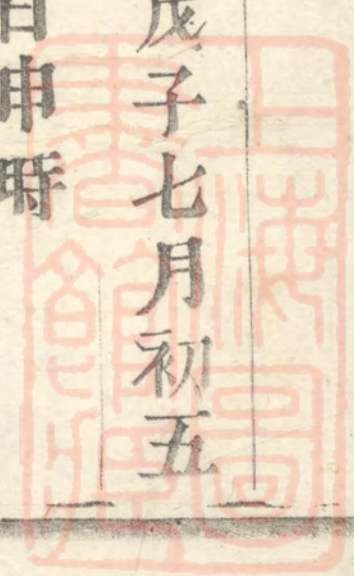 戊子七月初五
日申時
上海圖書館藏